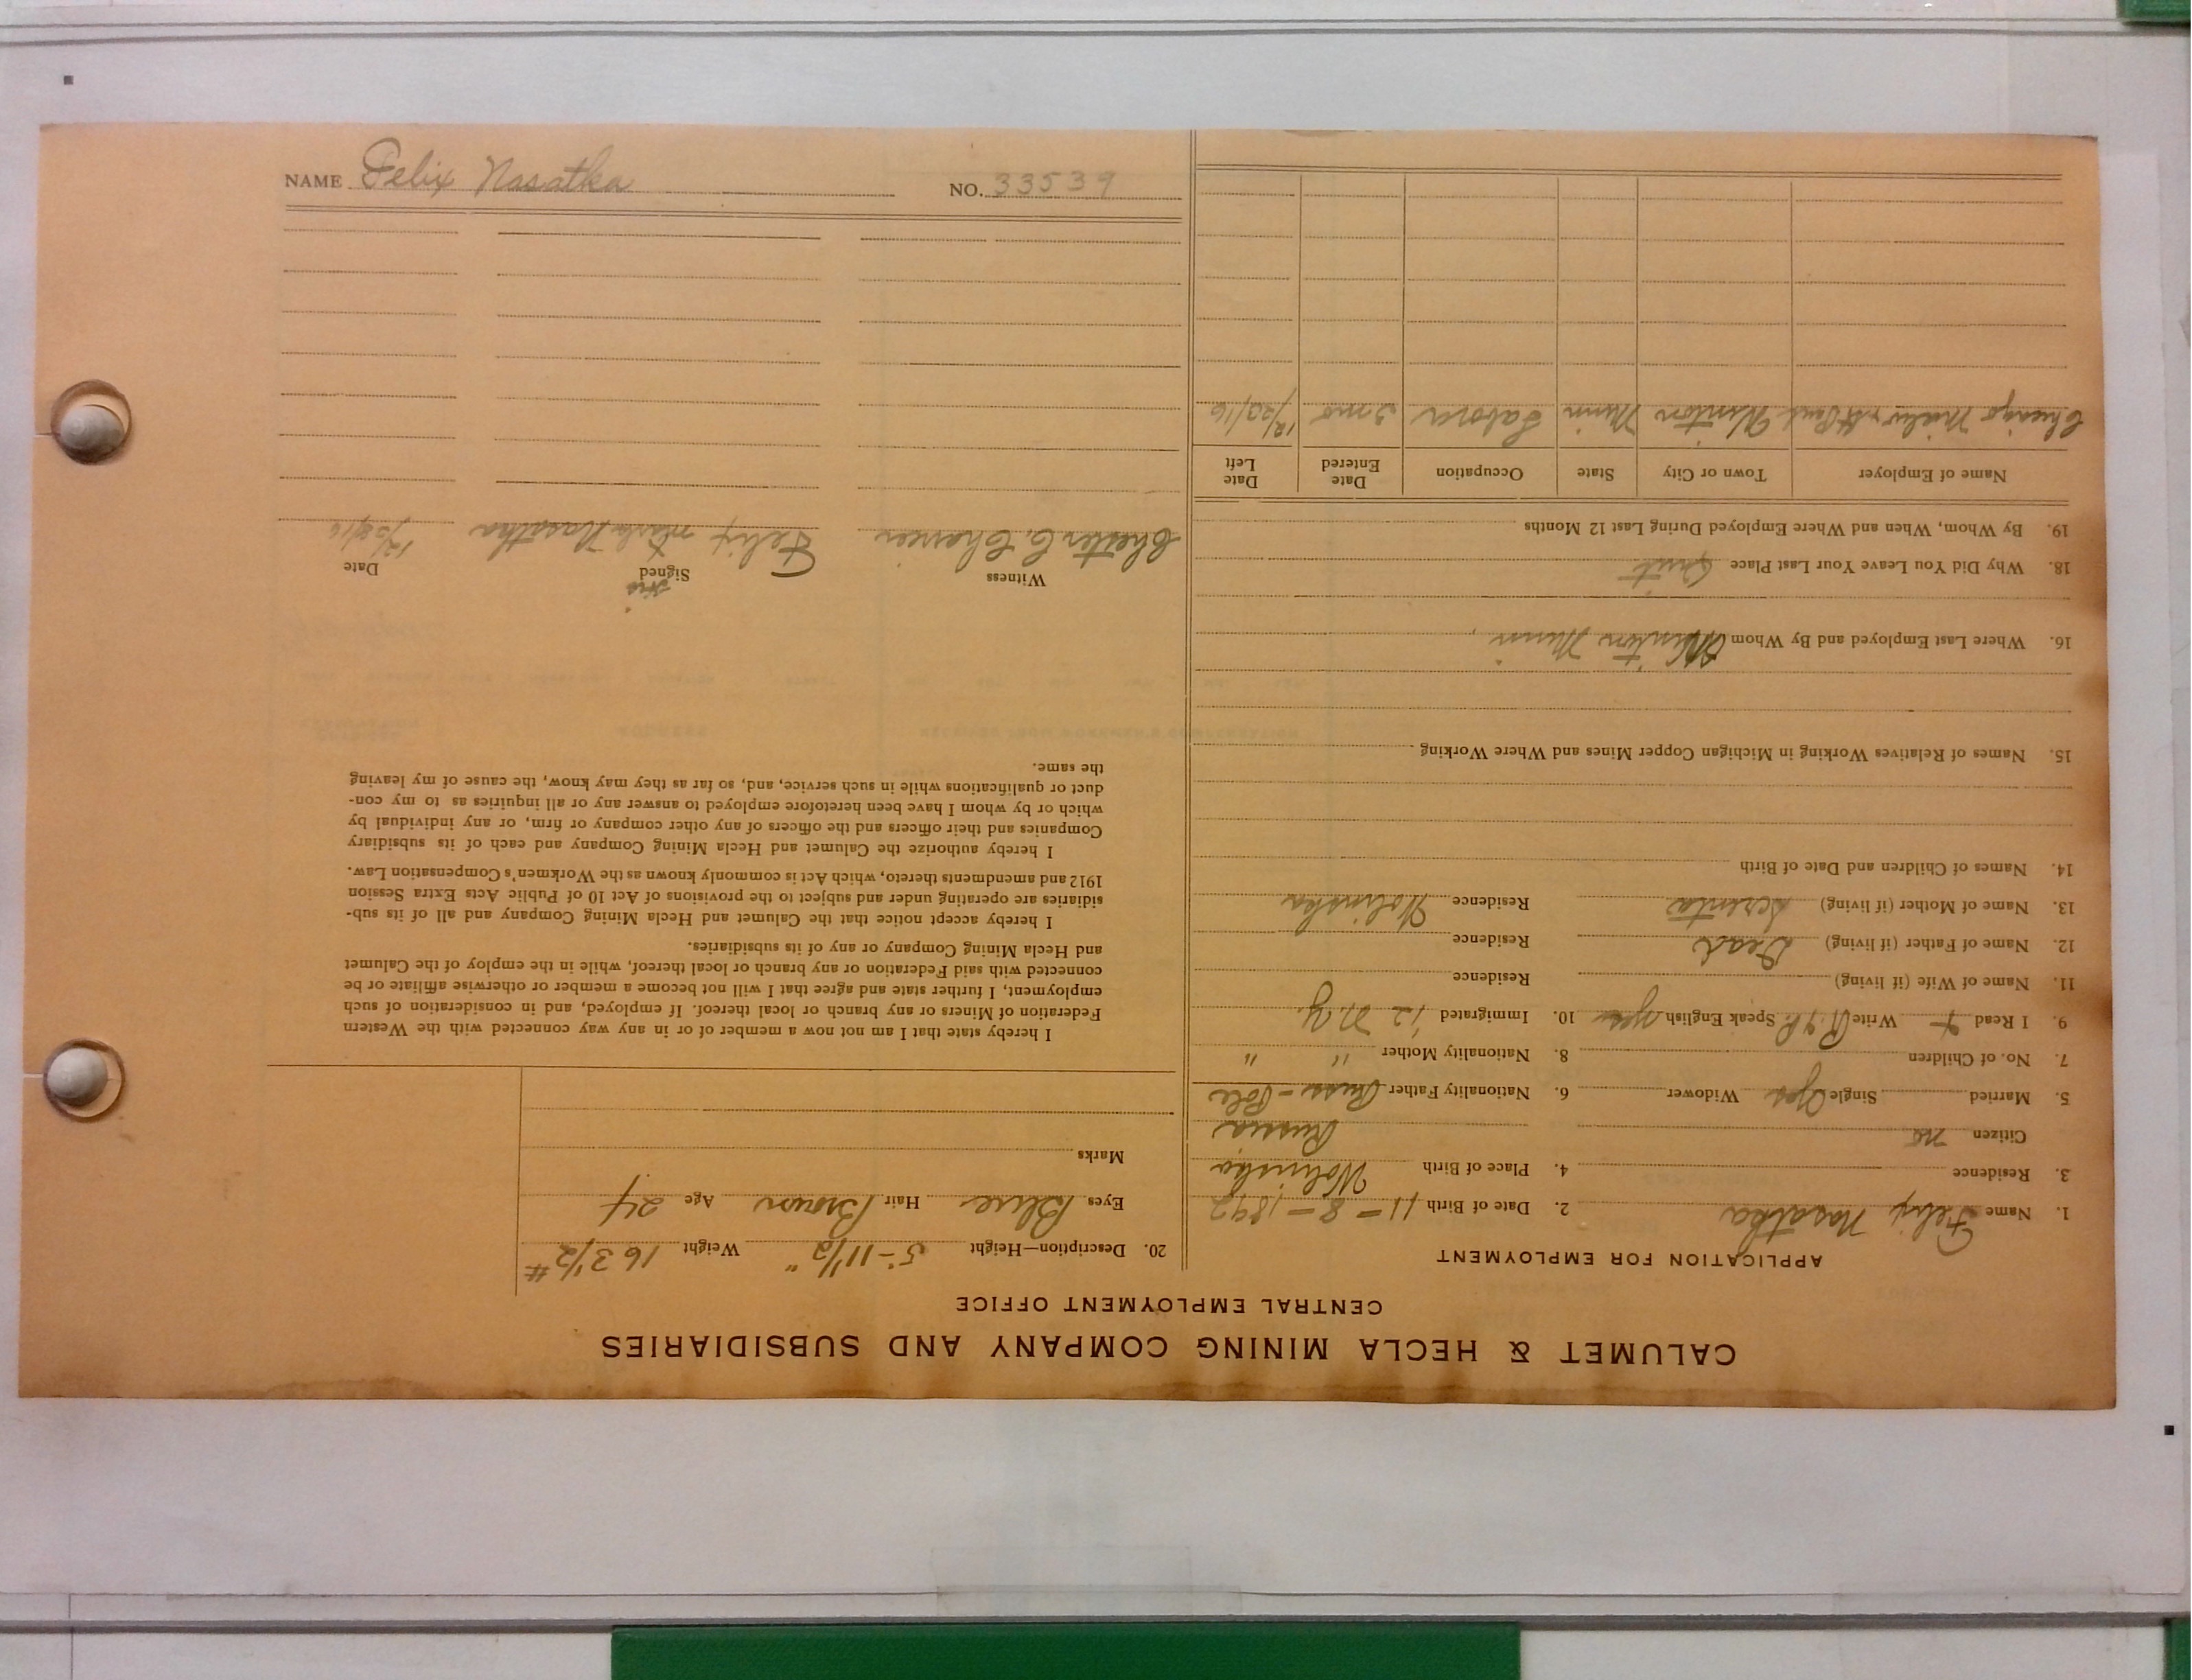 CALUMET & HECLA MINING COMPANY AND SUBSIDIARIES
CENTRAL EMPLOYMENT OFFICE
APPLICATION FOR EMPLOYMENT
1. Name Felix Nasatka 2. Date of Birth 11-8-1892
3. Residence 4. Place of Birth Wolinska
Citizen no Russia
5. Married Single yes Widower 6. Nationality Father Russ-Pole
7. No. of Children 8. Nationality Mother " "
9. I Read + Write Speak English 10. Immigrated '12 N.Y.
11. Name of Wife (if living) Residence
12. Name of Father (if living) Dead Residence
13. Name of Mother (if living) Residence Wolinska
14. Names of Children and Date of Birth
15. Names of Relatives Working in Michigan Copper Mines and Where Working
16. Where Last Employed and By Whom Winton Minn
18. Why Did You Leave Your Last Place Quit
19. By Whom, When and Where Employed During Last 12 Months
Name of Employer Town or City State Occupation Date Entered Date Left
Chicago Milw & St Paul Winton Minn Laborer 3 mo 12/20/16
20. Description—Height 5'-11 1/2" Weight 163 1/2 #
Eyes Blue Hair Brown Age 24
Marks
I hereby state that I am not now a member of or in any way connected with the Western
Federation of Miners or any branch or local thereof. If employed, and in consideration of such
employment, I further state and agree that I will not become a member or otherwise affiliate or be
connected with said Federation or any branch or local thereof, while in the employ of the Calumet
and Hecla Mining Company or any of its subsidiaries.
I hereby accept notice that the Calumet and Hecla Mining Company and all of its sub-
sidiaries are operating under and subject to the provisions of Act 10 of Public Acts Extra Session
1912 and amendments thereto, which Act is commonly known as the Workmen's Compensation Law.
I hereby authorize the Calumet and Hecla Mining Company and each of its subsidiary
Companies and their officers and the officers of any other company or firm, or any individual by
which or by whom I have been heretofore employed to answer any or all inquiries as to my con-
duct or qualifications while in such service, and, so far as they may know, the cause of my leaving
the same.
Witness Signed Date
his
Chester C. Felix mark Nasatka
NAME Felix Nasatka NO. 33539